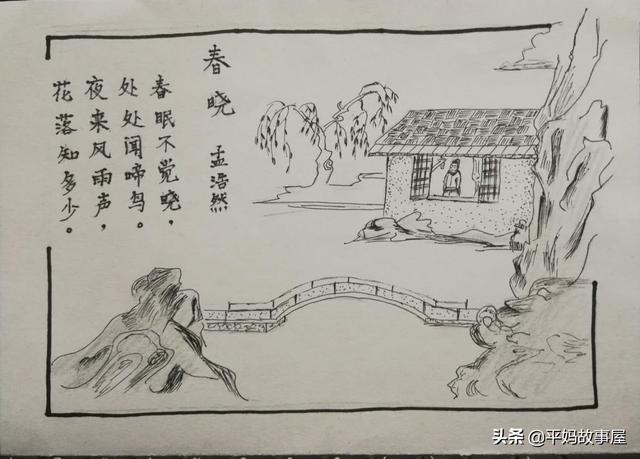 春晓
孟浩然
春眠不觉晓，
处处闻啼鸟。
夜来风雨声，
花落知多少。
头条 @平妈故事屋